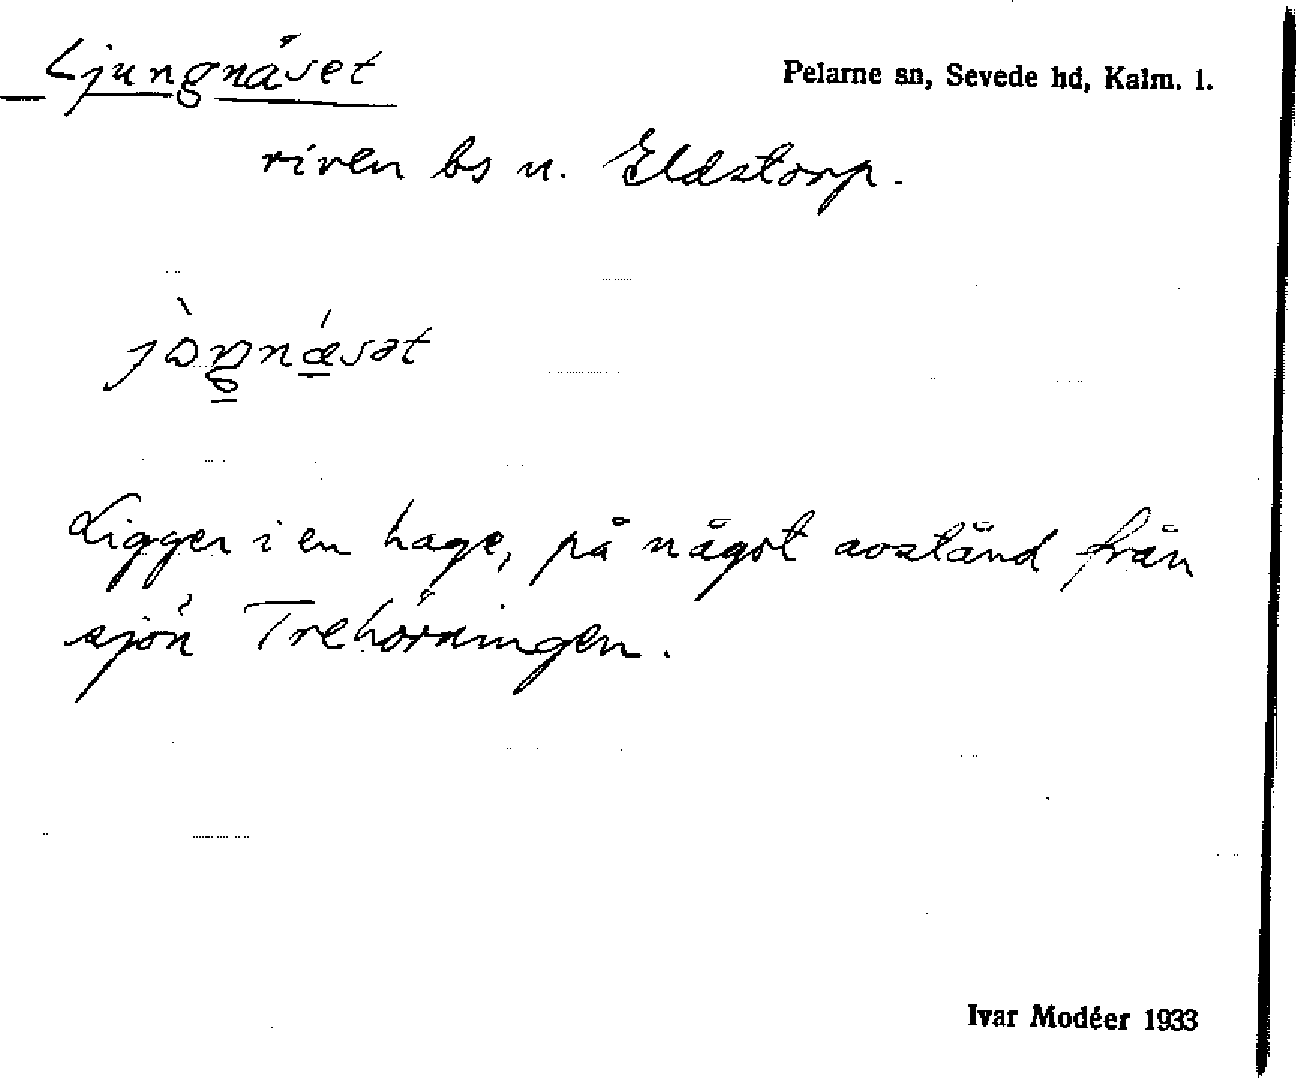 Ljungnäset
Pelarne sn, Sevede hd, Kalm. l.
riven bs u. Eldstorp.
jὼŋnǽsət
Ligger i en hage, på något avstånd från
sjön Trehörningen.
Ivar Modéer 1933